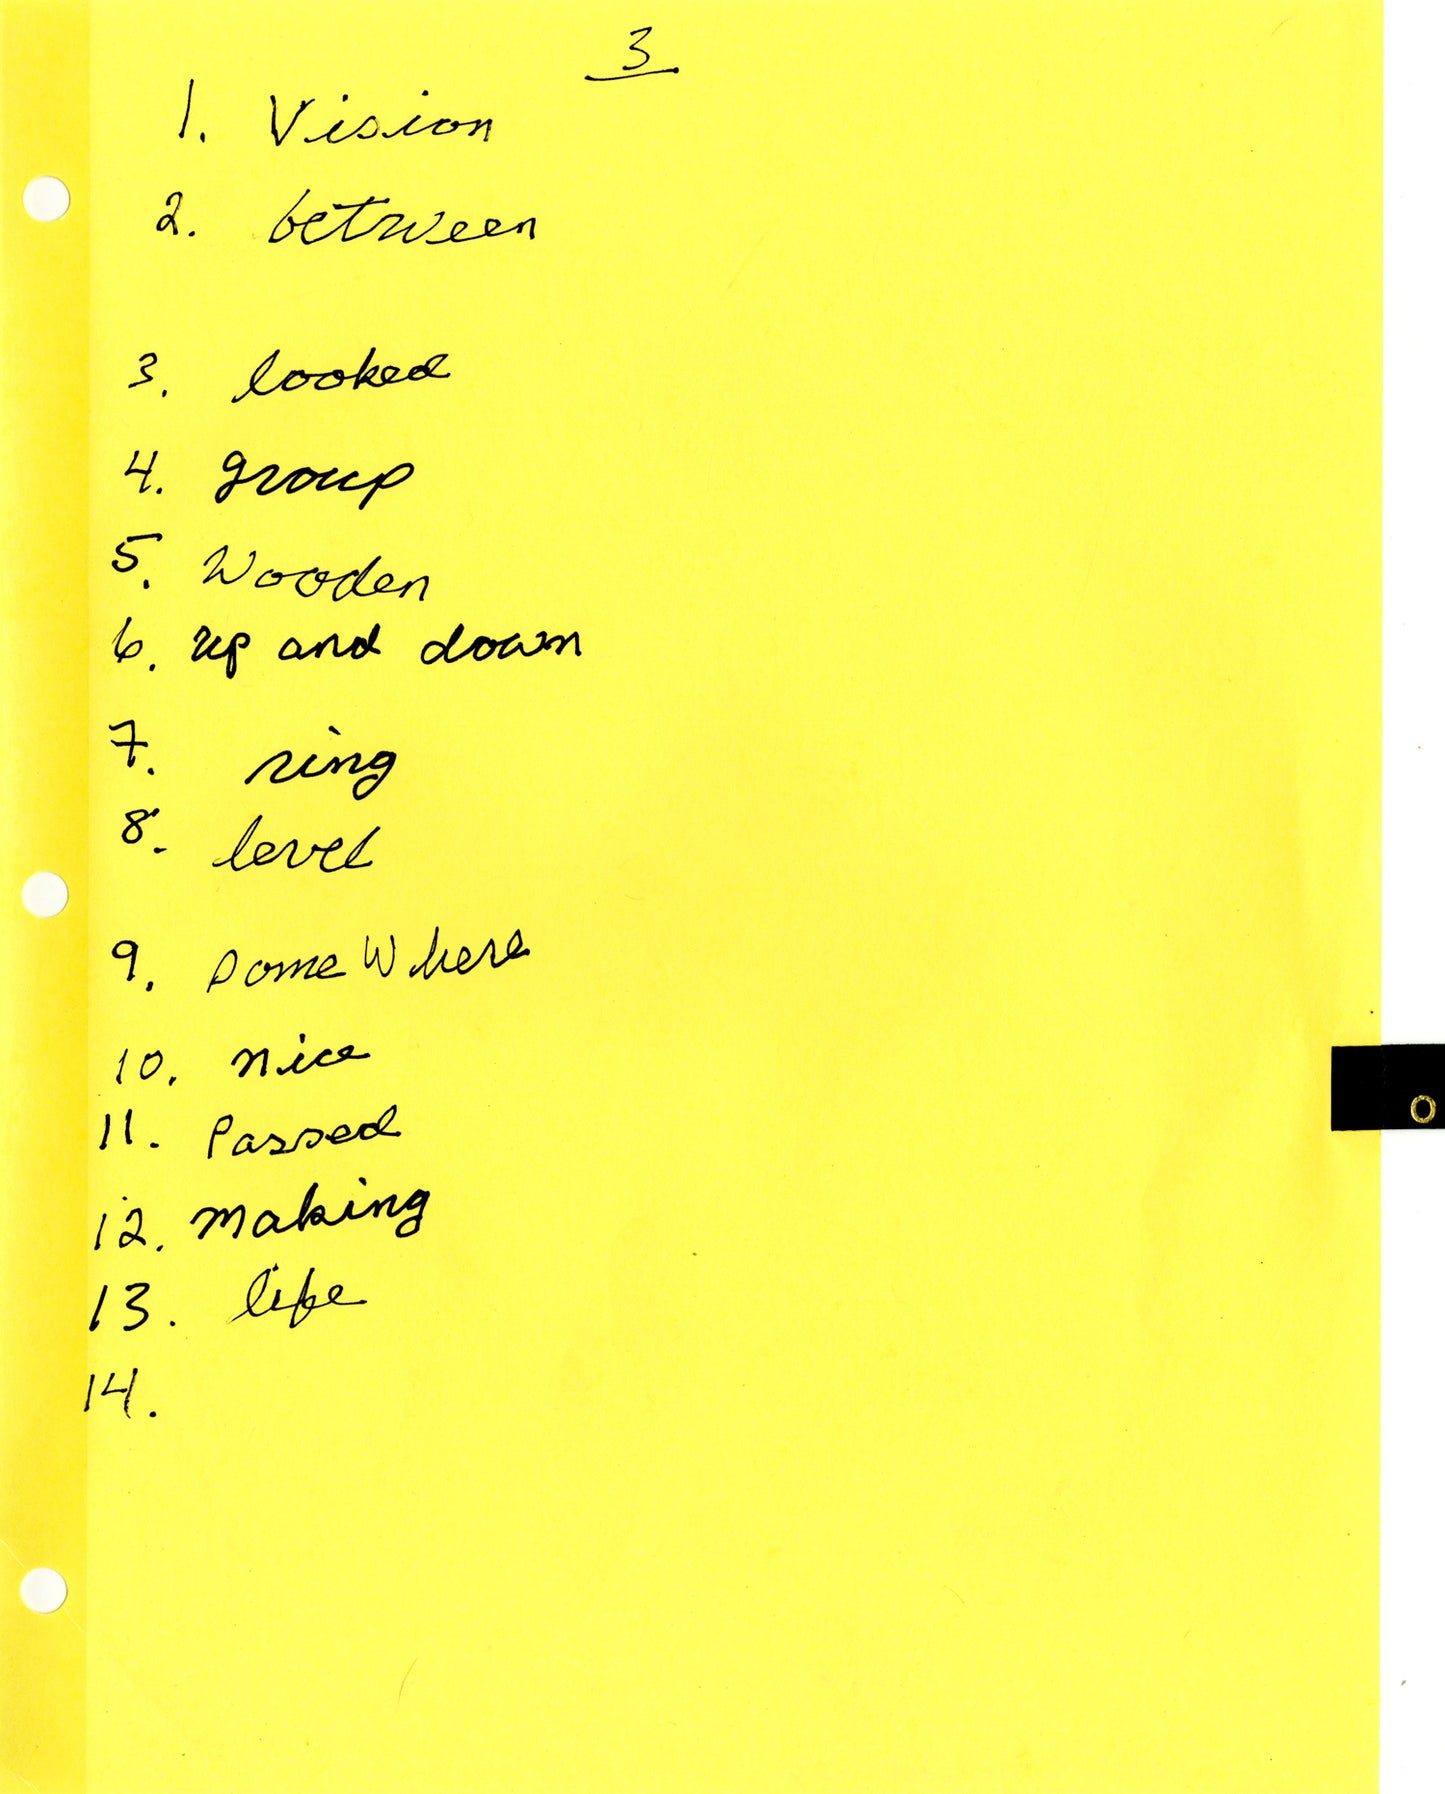 3
1. Vision
2. between
3. looked
4. group
5. Wooden
6. up and down
7. ring
8. level
9. some Where
10. nice
11. Passed
12. making
13. life
14.
O